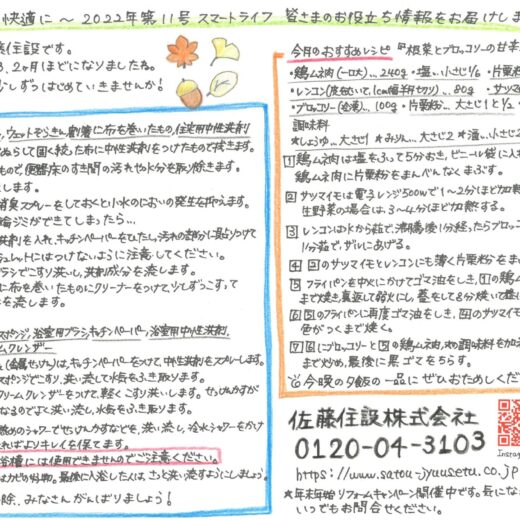 快適に～2022年第11号 スマートライフ 皆さまのお役立ち情報をお届けしま
住設です。
2ヶ月ほどになりましたね。
しずつはじめていきませんか！
ウェットぞうきん、割箸に布を巻いたもの、住宅用中性洗剤
ぬらして固く絞った布に中性洗剤をつけたもので拭きます。
もので、便器床のすき間の汚れや水分を取り除きます。
します。
消臭スプレーをしておくと小水のにおいの発生を抑えます。
輪ジミができてしまったら…
洗剤を入れ、キッチンペーパーをひたし、汚れの部分に貼りつけて
ュレットにはつけないように注意してください。
ラシでこすり洗いし、洗剤成分を流します。
に布を巻いたものにクリーナーをつけて、少しずつこすって
を流します。
スポンジ、浴室用ブラシ、キッチンペーパー、浴室用中性洗剤、
ームクレンザー
（金属せっけん）は、キッチンペーパーをつけて、中性洗剤をスプレーします。
スポンジでこすり、洗い流して水気をふき取ります。
リームクレンザーをつけて、軽くこすり洗いします。せっけんカスが
なるのでよく洗い流し、水気をふき取ります。
めのシャワーでせっけんカスなどを、洗い流し、冷水シャワーをかけ
ればよりキレイを保てます。
浴槽には使用できませんのでご注意ください。
はカビの好物。最後に入浴した人は、さっと洗い流すようにしましょう。
除、みなさんがんばりましょう！
今月のおすすめレシピ 『根菜とブロッコリーの甘辛
・鶏ムネ肉（一口大）…240g ・塩…小さじ1/6 ・片栗粉
・レンコン（皮をむいて、1cm幅半月切り）…80g ・サツマ
・ブロッコリー（冷凍）…100g ・片栗粉…大さじ1と1/2
調味料
★しょうゆ…大さじ1 ★みりん…大さじ2 ★酒…小さじ
1 鶏ムネ肉は塩をふって5分おき、ビニール袋に入れ
鶏ムネ肉に片栗粉をまんべんなくまぶす。
2 サツマイモは電子レンジ500wで1～2分ほど加熱
生野菜の場合は、3～4分ほど加熱する。
3 レンコンは水から茹で、沸騰後1分経ったらブロッコ
1分茹で、ザルにあげる。
4 2のサツマイモとレンコンにも薄く片栗粉をま
5 フライパンを中火にかけてゴマ油をしき、1の鶏ム
まで焼き、裏返して弱火にし、蓋をして8分焼いて
6 5のフライパンに再度ゴマ油をしき、4のサツマイモ
色がつくまで焼く。
7 6にブロッコリーと5の鶏ムネ肉、★の調味料を加
まで炒め、最後に黒ゴマをちらす。
今晩の夕飯の一品にぜひおためしくだ
佐藤住設株式会社
0120-04-3103
https://www.satou-jyuusetu.co.jp
Instag
★年末年始リフォームキャンペーン開催中です。気にな
いつでもお問合せください。